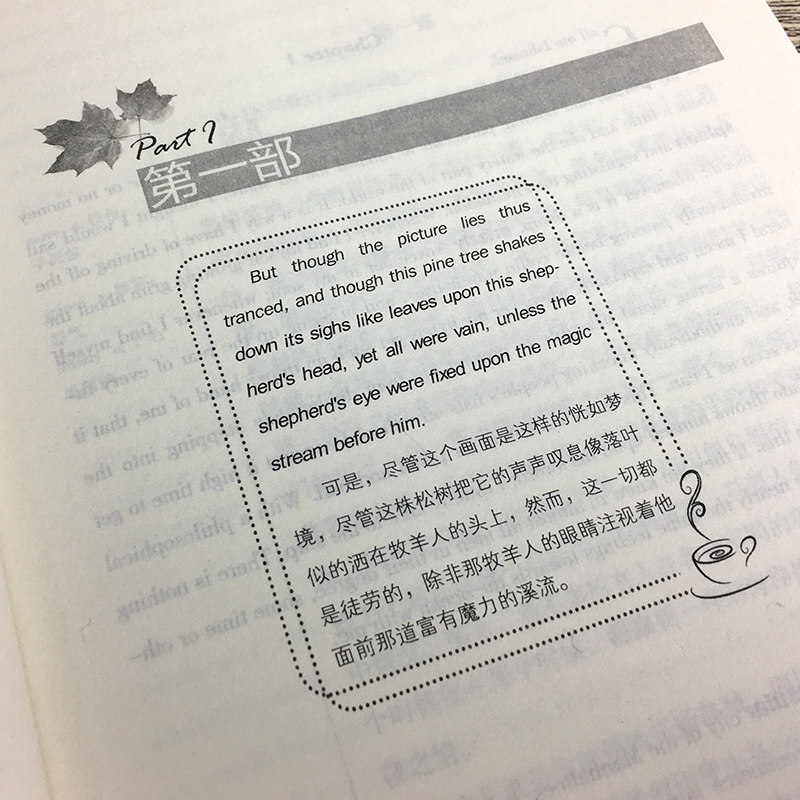 Part 1
第一部
But though the picture lies thus
tranced, and though this pine tree shakes
down its sighs like leaves upon this shep-
herd's head, yet all were vain, unless the
shepherd's eye were fixed upon the magic
stream before him.
可是，尽管这个画面是这样的恍如梦
境，尽管这株松树把它的声声叹息像落叶
似的洒在牧羊人的头上，然而，这一切都
是徒劳的，除非那牧羊人的眼睛注视着他
面前那道富有魔力的溪流。